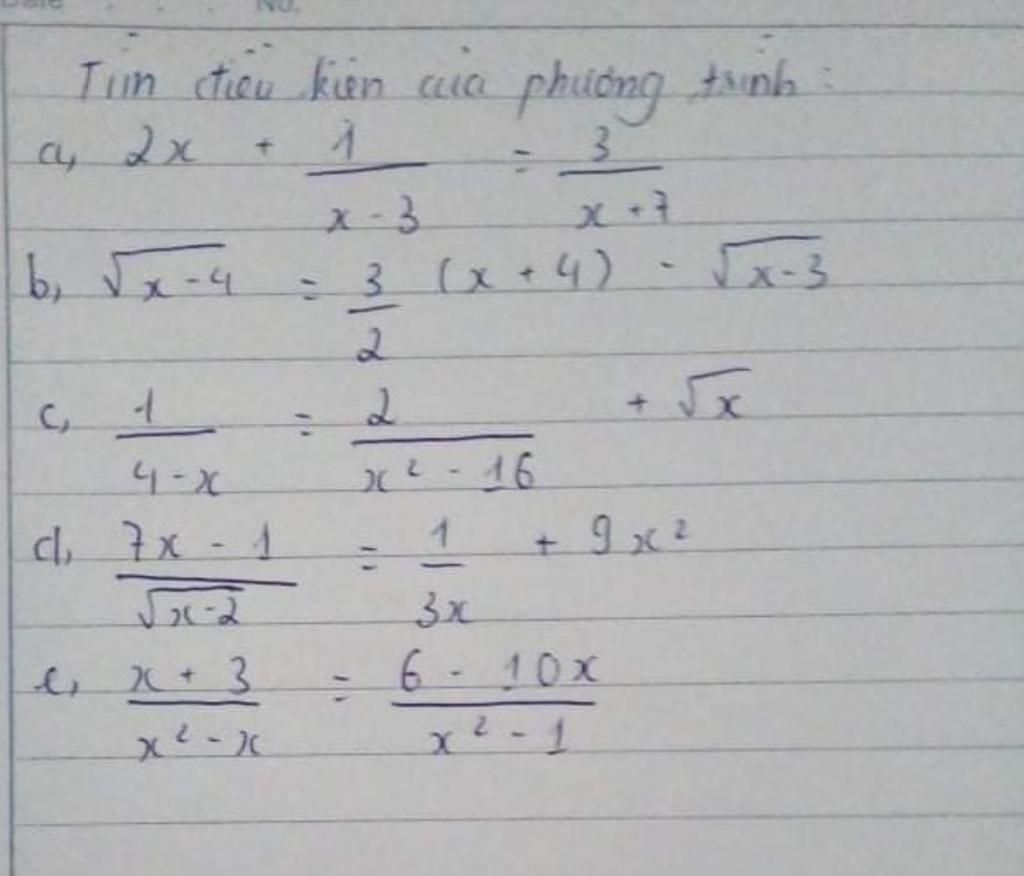 Date . . . No.
Tìm điều kiện của phương trình :
a, 2x + 1/(x - 3) = 3/(x + 7)
b, √(x - 4) = 3/2 (x + 4) - √(x - 3)
c, 1/(4 - x) = 2/(x² - 16) + √x
d, (7x - 1)/√(x - 2) = 1/(3x) + 9x²
e, (x + 3)/(x² - x) = (6 - 10x)/(x² - 1)